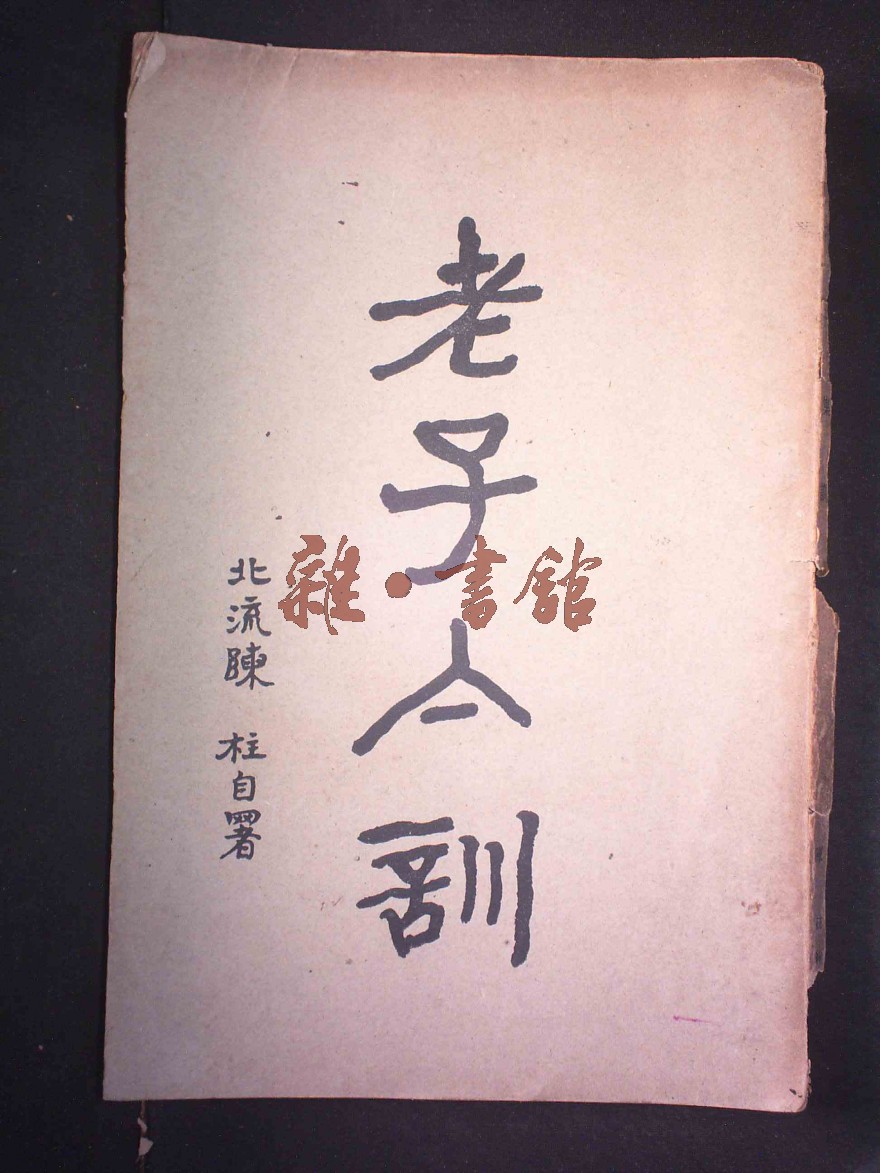 老子亼訓
北流陳 柱自署
雜·書館